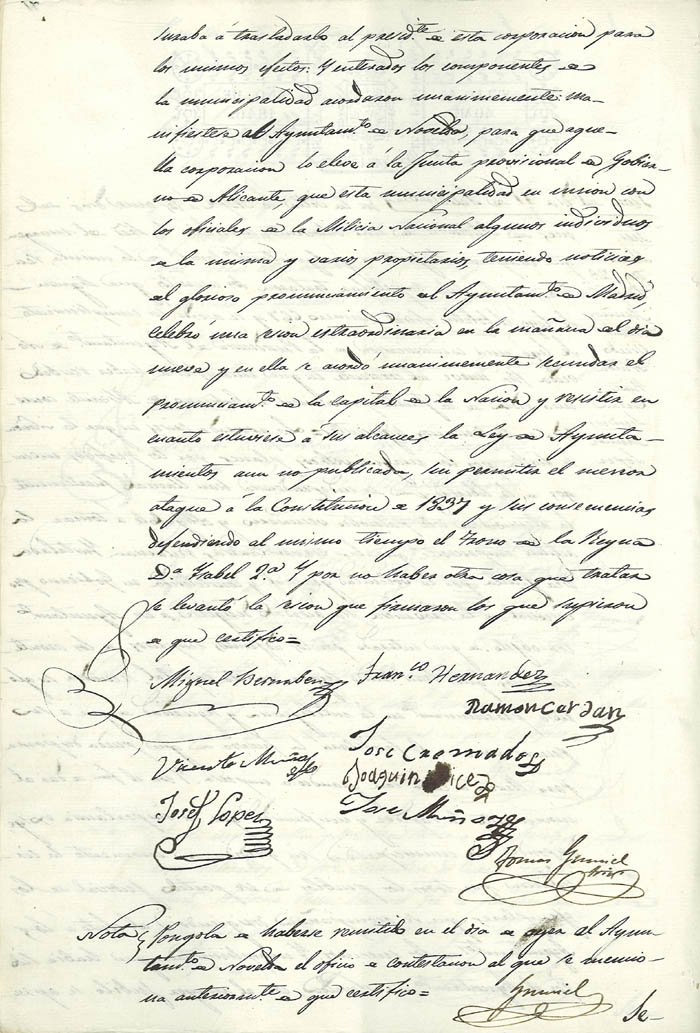 suraba á trasladarlo al presid.te de esta corporacion para
los mismos efectos: Y enterados los componentes de
la municipalidad acordaron unanimemente: ma-
nifiestese al Ayuntam.to de Novelda, para que aque-
lla corporacion lo eleve á la Junta provisional de Gobier-
no de Alicante, que esta municipalidad en union con
los oficiales de la Milicia Nacional algunos individuos
de la misma y varios propietarios, teniendo noticias
del glorioso pronunciamiento del Ayuntam.to de Madrid,
celebró una sesion estraordinaria en la mañana del dia
nueve y en ella se acordó unanimemente secundar el
pronunciam.to de la capital de la Nacion y resistir en
cuanto estuviese á sus alcances la Ley de Ayunta-
mientos aun no publicada, sin permitir el menor
ataque á la Constitucion de 1837 y sus consecuencias
defendiendo al mismo tiempo el Trono de la Reyna
D.a Ysabel 2.a Y por no haber otra cosa que tratar
se levantó la sesion que firmaron los que supieron
de que certifico=
Miguel Fran.co Hernandez
Ramon Cerdan
Vicente Muñoz Jose Cremades
Joaquin
Josef Lopez Jose Muñoz
Tomas
Nota Pongola de haberse remitido en el dia de oyen al Ayun-
tam.to de Novelda el oficio de contestacion al que se mencio-
na anteriorm.te de que certifico=
Se-